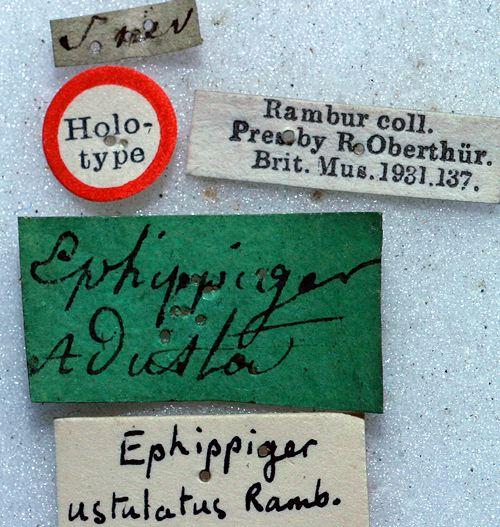 S. nev
Holo-
type
Rambur coll.
Pres. by R. Oberthür.
Brit. Mus. 1931.137.
Ephippiger
Adusta
Ephippiger
ustulatus Ramb.